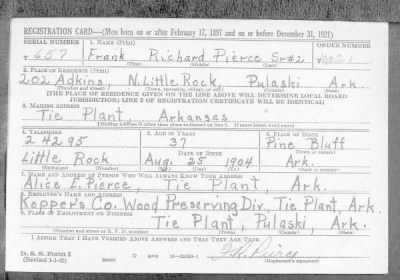 REGISTRATION CARD—(Men born on or after February 17, 1897 and on or before December 31, 1921)
SERIAL NUMBER 1. NAME (Print) ORDER NUMBER
T 657 Frank Richard Pierce, Sr #2
(First) (Middle) (Last)
2. PLACE OF RESIDENCE (Print)
202 Adkins N. Little Rock, Pulaski Ark.
(Number and street) (Town, township, village, or city) (County) (State)
[THE PLACE OF RESIDENCE GIVEN ON THE LINE ABOVE WILL DETERMINE LOCAL BOARD
JURISDICTION; LINE 2 OF REGISTRATION CERTIFICATE WILL BE IDENTICAL]
3. MAILING ADDRESS
Tie Plant, Arkansas
[Mailing address if other than place indicated on line 2. If same insert word same]
4. TELEPHONE 5. AGE IN YEARS 6. PLACE OF BIRTH
2 42 95 37 Pine Bluff
DATE OF BIRTH
Little Rock Aug. 25 1904 Ark.
(Exchange) (Number) (Mo.) (Day) (Yr.) (State or country)
7. NAME AND ADDRESS OF PERSON WHO WILL ALWAYS KNOW YOUR ADDRESS
Alice L. Pierce, Tie Plant, Ark.
8. EMPLOYER'S NAME AND ADDRESS
Kopper's Co. Wood Preserving Div. Tie Plant, Ark.
9. PLACE OF EMPLOYMENT OR BUSINESS
Tie Plant, Pulaski, Ark.
(Number and street or R. F. D. number) (Town) (County) (State)
I AFFIRM THAT I HAVE VERIFIED ABOVE ANSWERS AND THAT THEY ARE TRUE.
D. S. S. Form 1
(Revised 1-1-42) (over) (Registrant's signature)